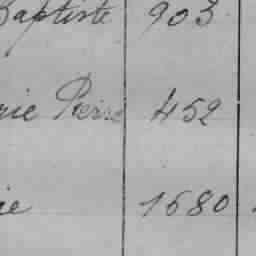 Baptiste 903
rie Pierre 452
ie 1680